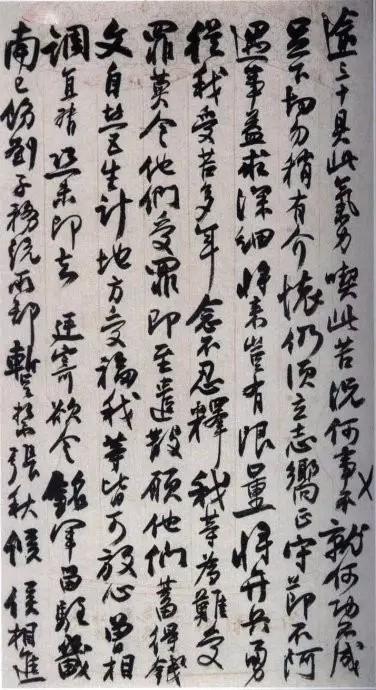 途三十具此氣力喫此苦況何事不就何功不成
足下切勿稍有介懷仍須立志嚮正守節不阿
遇事益求深細將來豈有限量將弁兵勇
從我受苦多年念不忍釋我等為難受
罪莫令他們受罪即至遣散願他們蓄得錢
文自生計地方受福我等皆可放心曾相
調直督恐未即去廷寄欲令銘軍留駐畿
南已飭劉子務統兩部暫紮張秋候侯相進